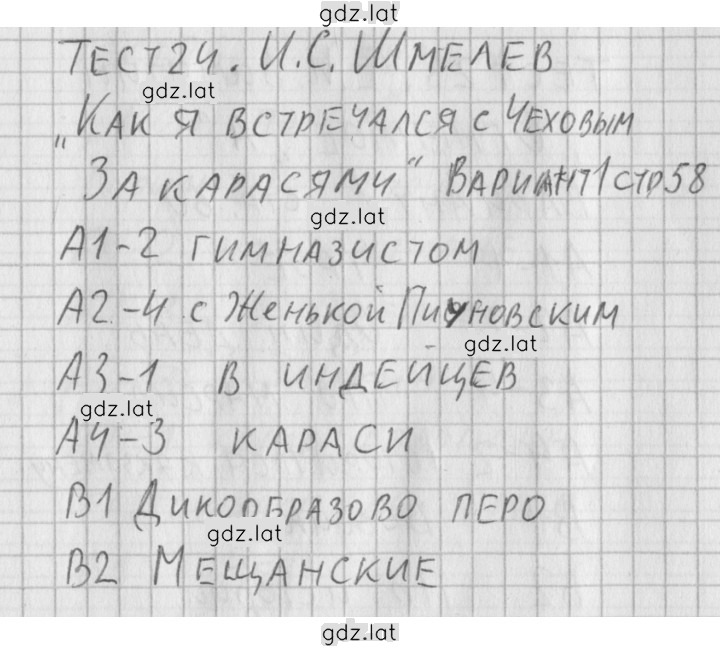 gdz.lat
ТЕСТ 24. И.С. ШМЕЛЕВ
gdz.lat
„КАК Я ВСТРЕЧАЛСЯ С ЧЕХОВЫМ
ЗА КАРАСЯМИ“ ВАРИАНТ 1 СТР 58
gdz.lat
А1-2 ГИМНАЗИСТОМ
А2-4 С ЖЕНЬКОЙ ПИУНОВСКИМ
gdz.lat
А3-1 В ИНДЕЙЦЕВ
gdz.lat
А4-3 КАРАСИ
В1 ДИКОПБРАЗОВО ПЕРО
gdz.lat
В2 МЕЩАНСКИЕ
gdz.lat